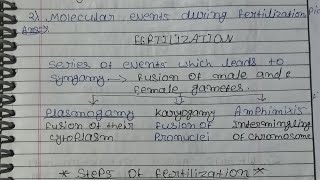 2) Molecular events during fertilization
Ans:
FERTILIZATION
series of events which leads to
syngamy → fusion of male and
female gametes.
Plasmogamy Karyogamy Amphimixis
fusion of their fusion of Intermingling
cytoplasm Pronuclei of chromosome
* Steps of fertilization *